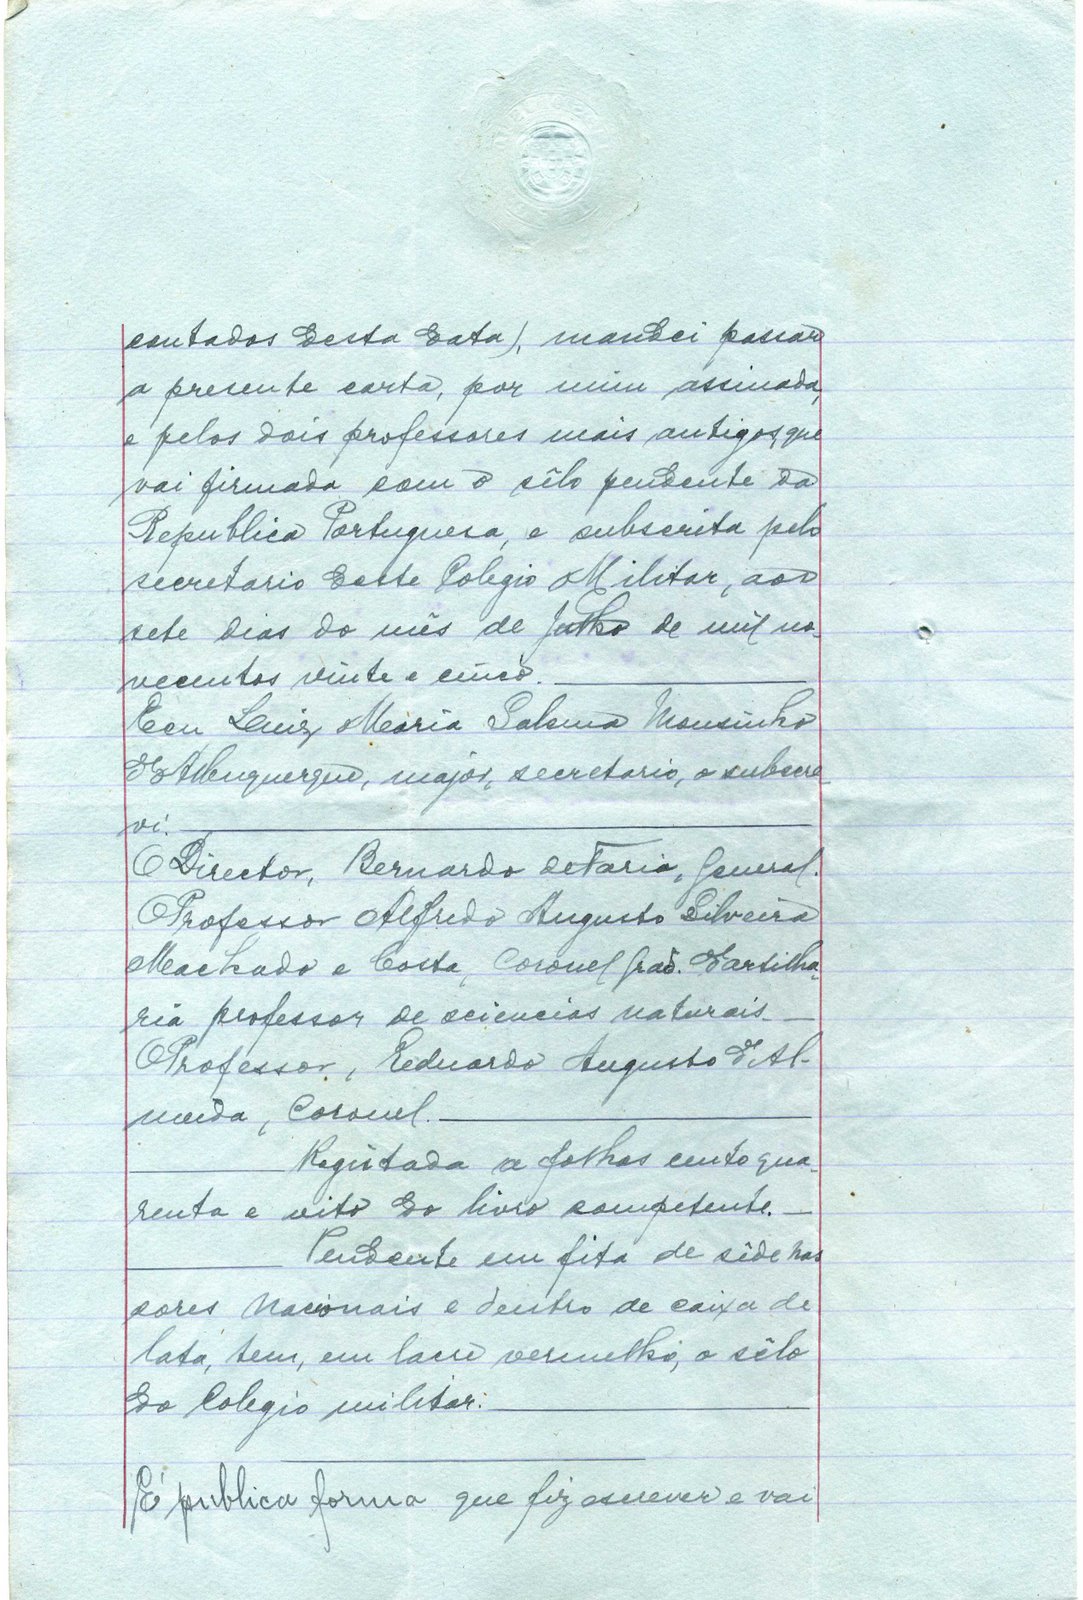 contados desta data), mandei passar
a presente carta, por mim assinada,
e pelos dois professores mais antigos, que
vai firmada com o sêlo pendente da
Republica Portuguesa, e subscrita pelo
secretario deste Colegio Militar, aos
sete dias do mês de Julho de mil no-
vecentos vinte e cinco.
Eeu Luiz Maria Mousinho
d'Albuquerque, major, secretario, o subscre-
vi.
O Director, Bernardo de Faria, General.
O Professor Alfredo Augusto Silveira
Machado e Costa, Coronel Grad. d'artilha-
ria professor de sciencias naturais.
O Professor, Eduardo Augusto d'Al-
meida, Coronel.
Registada a folhas cento qua-
renta e oito do livro competente.
Pendente em fita de sêde nas
cores nacionais e dentro de caixa de
lata, tem, em lacre vermelho, o sêlo
do Colegio militar.
É publica forma que fiz escrever e vai